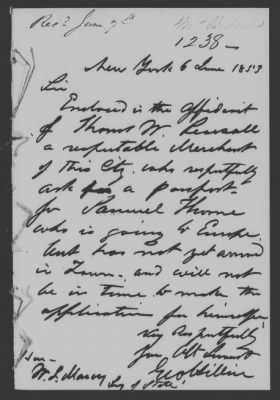 Recd June 7th
1238 -
New York 6 June 1853
Sir
Enclosed is the Affidavit
of Thomas W. Pearsall
a respectable Merchant
of this City. who respectfully
ask for a passport
for Samuel Thorne
who is going to Europe
but has not yet arrived
in Town. and will not
be in time to make the
application for himself
Very Respectfully
Your Obt Servant
Hon
W. L. Marcy
Secy of State